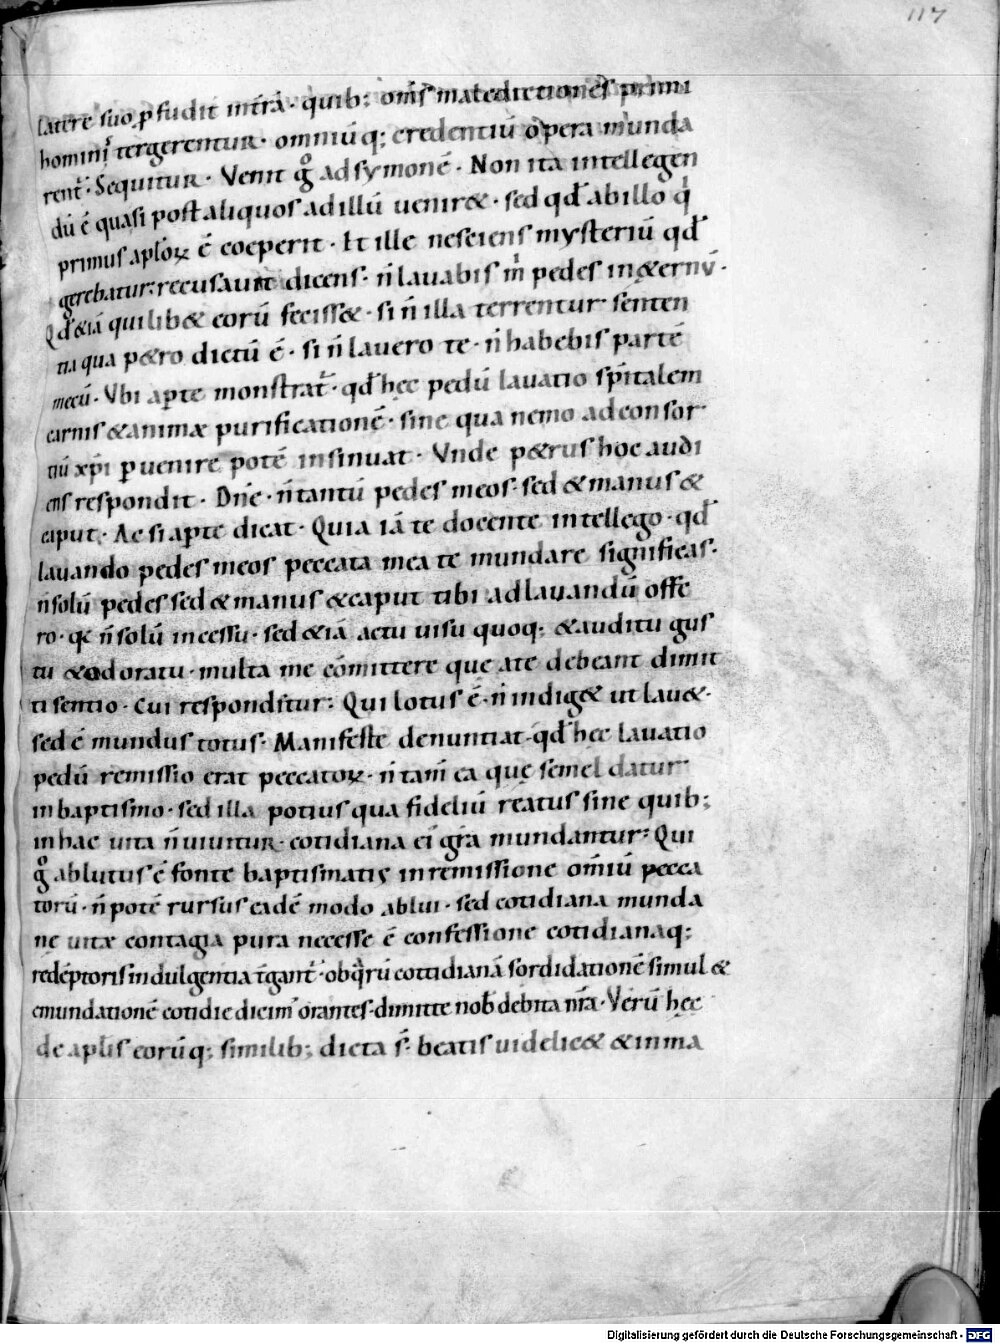 117
latere suo ꝓfudit in trā · quib; om̅s maledictiones primi
hominis tergerentur · omniū q; credentiū opera munda
rent̄ · Sequitur · Venit gͦ ad symonē · Non ita intellegen
dū ē quasi post aliquos ad illū uenir& · sed qd̄ ab illo qͥ
primus aplōꝝ ē coeperit · Et ille nesciens mysteriū qd̄
gerebatur: recusauit dicens · n̄ lauabis mͥ pedes in &ernū ·
Qd̄ &iā quilib& eorū feciss& · si n̄ illa terrentur senten
tia qua p&ro dictū ē · si n̄ lauero te · n̄ habebis partē
mecū · Vbi apte monstrat̄ · qd̄ hęc pedū lauatio sp̄italem
carnis & animæ purificationē · sine qua nemo ad consor
tiū xp̄i ꝑuenire potē insinuat · Vnde p&rus hoc audi
ens respondit · Dn̄e · n̄ tantū pedes meos · sed & manus &
caput · Ac si aꝑte dicat · Quia iā te docente intellego · qd̄
lauando pedes meos peccata mea te mundare significas ·
n̄ solū pedes sed & manus & caput tibi ad lauandū offe
ro · qꝛ n̄ solū incessu · sed &iā actu uisu quoq; & auditu gus
tu & odoratu · multa me cōmittere que a te debeant dimit
ti sentio · Cui respondetur: Qui lotus ē · n̄ indig& ut lau& ·
sed ē mundus totus · Manifeste denuntiat · qd̄ hęc lauatio
pedū remissio erat peccatoꝝ · n̄ tam̄ ea quę semel datur
in baptismo · sed illa potius qua fideliū reatus sine quib;
in hac uita n̄ uiuitur · cotidiana ei gr̄a mundantur: Qui
gͦ ablutus ē fonte baptismatis in remissione om̄iū pecca
torū · n̄ potē rursus eadē modo ablui · sed cotidiana munda
ne uitæ contagia pura necesse ē confessione cotidianaq;
redēptoris indulgentia t̄gant̄ · ob qͣrū cottidianā sordidationē simul &
emundationē cotidie dicimꝰ orantes · dimitte nob̄ debita nr̄a · Verū hęc
de aplīs eorū q; similib; dicta s̄ · beatis uidelic& & in ma
Digitalisierung gefördert durch die Deutsche Forschungsgemeinschaft - DFG